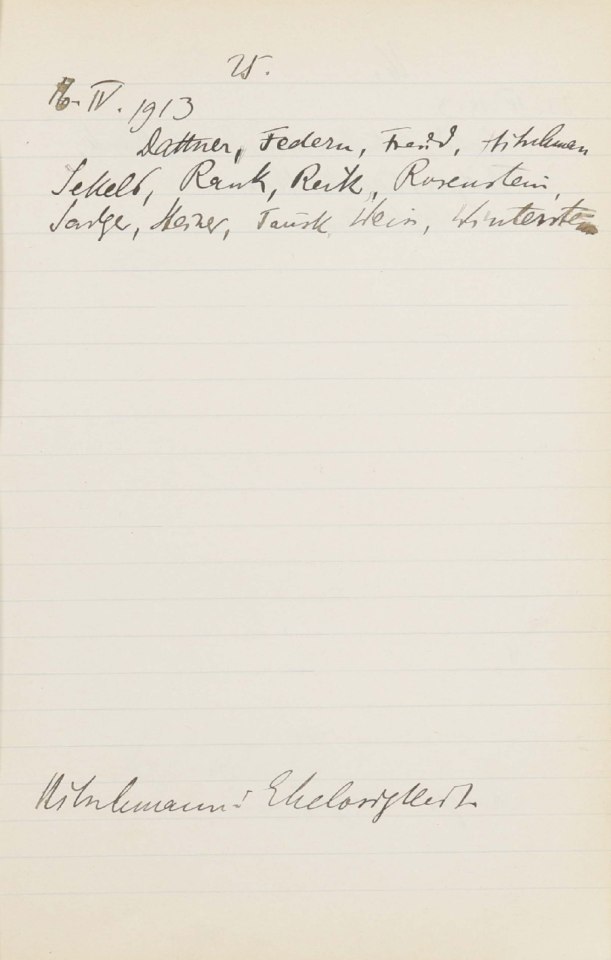 25.
16. IV. 1913
Dattner, Federn, Freud, Hitschmann
Jekels, Rank, Reik, Rosenstein,
Sadger, Steiner, Tausk, Weiss, Winterstein
Hitschmann: Ehelosigkeit